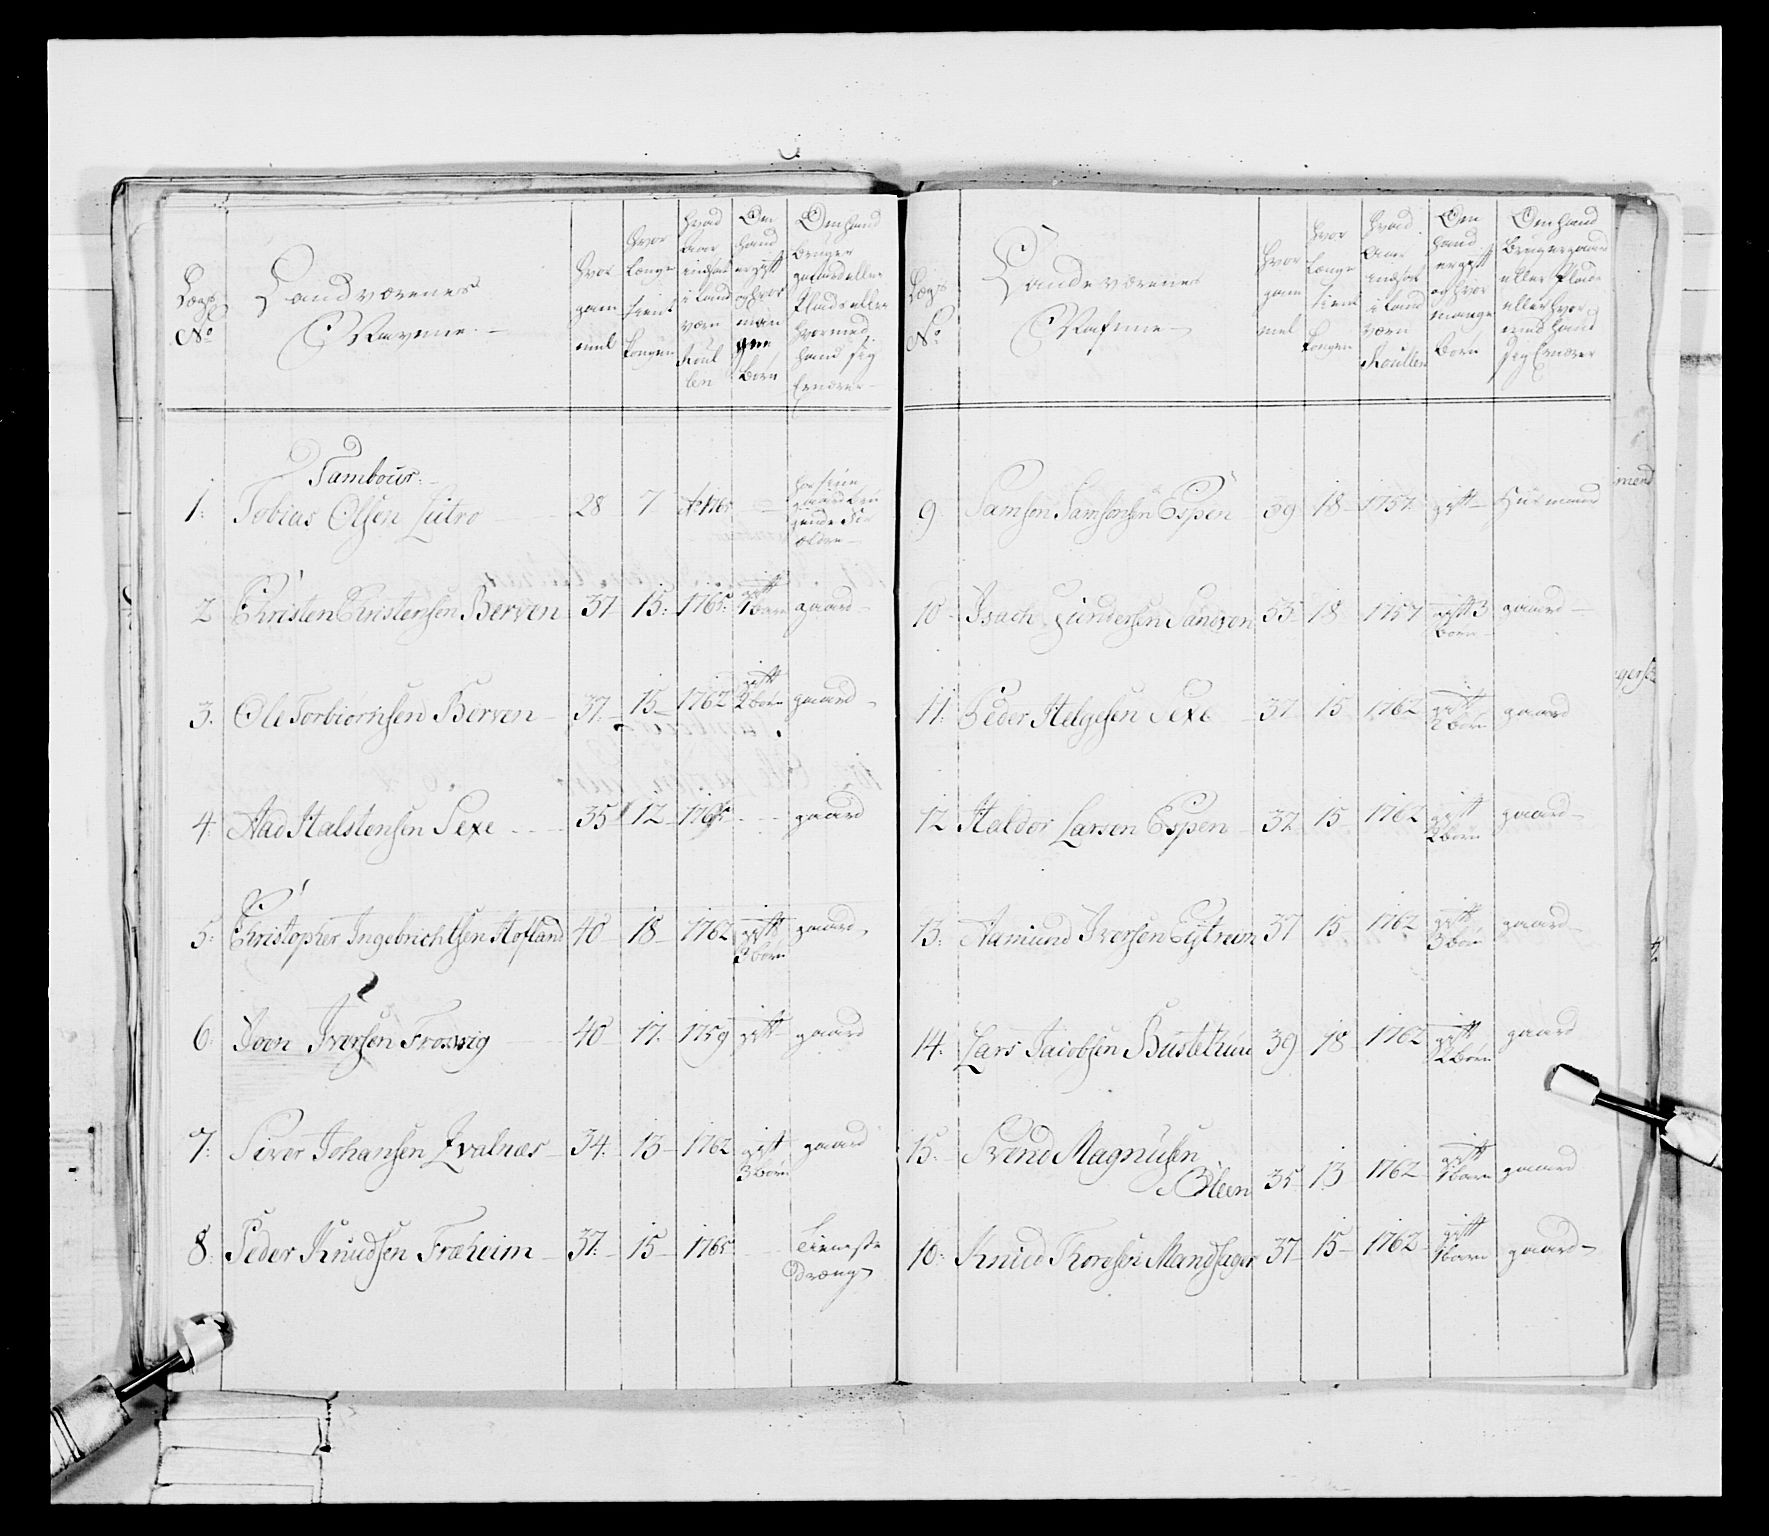 Lægs No
Landværenes Navne
Hvor gammel
Hvor længe tient Kongen
Hvad Aar indsat i Landværn Roullen
Om hand er gift og hvor mange børn
Om hand bruger gaard eller Plads eller hvormed hand sig Ernærer
Tambour
1: Tobias Olsen Lutro 28 7
2 Christen Christensen Berven 37 15: 1765: gift 1 børn gaard
3. Ole Torbiørnsen Berven 37 15 1762 gift 2 børn gaard
4: Aad Halstensen Sexe 35 12 gaard
5: Christopher Ingebrichtsen Hofland 40 18 1762 gift 3 børn gaard
6: Joen Iversen 40 17 1759 gift gaard
7: Siver Johansen Qvalnæs 34 13 1762 gift 3 børn gaard
8: Peder Knudsen Fræheim 37 15 1765 Tieneste Dræng
Lægs No
Landeværenes Nafnne
Hvor gammel
Hvor længe tient Kongen
Hvad Aar indsat i Landværn Roullen
Om hand er gift og hvor mange børn
Om hand bruger gaard eller Plads eller hvormed hand sig Ernærer
9 Samson Samsonsen Espen 39 18 1757 gift Huusmand
10 Isach Gundersen 35 18 1757 gift 3 børn gaard
11: Peder Helgesen Sexe 37 15 1762 gift 2 børn gaard
12 Haldor Larsen Espen 37 15 1762 gift 2 børn gaard
13: Aamund Iversen 37 15 1762 gift 3 børn gaard
14: Lars Jacobsen Bustetun 39 18 1762 gift 2 børn gaard
15: Svend Magnusen
Bleen 35 13 1762 gift 1 barn gaard
16: Knud Toresen Mandsager 37 15 1762 gift 1 barn gaard